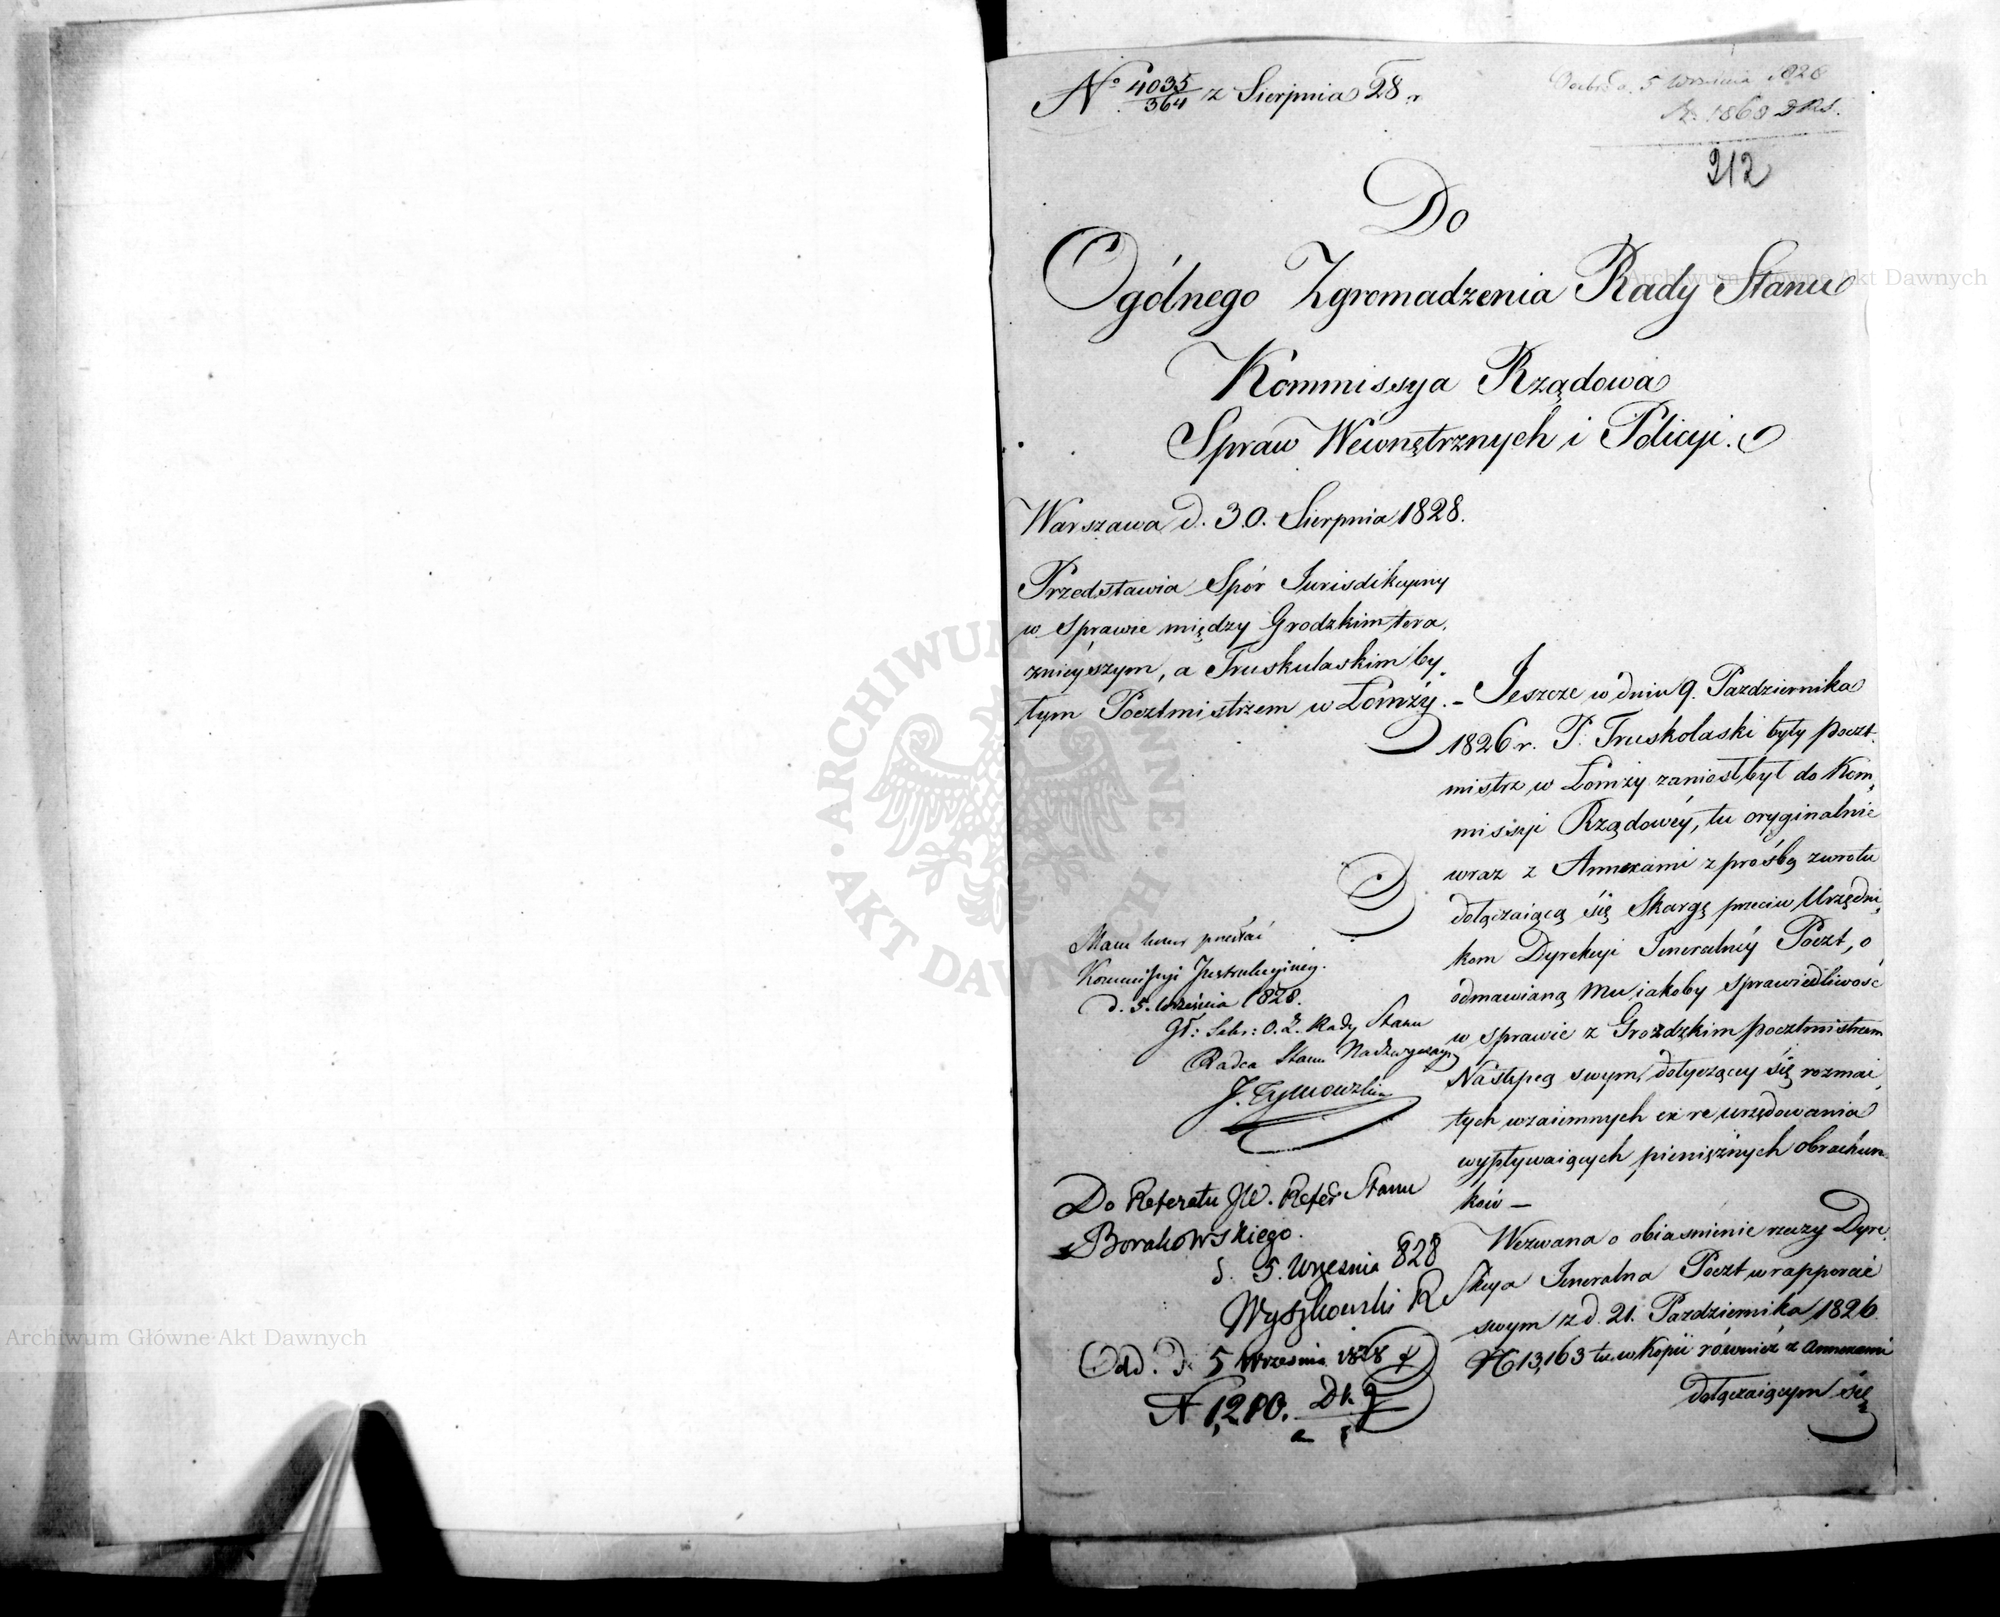 No 4035/364 z Sierpnia 28 r
Odebr. d. 5 Września 1828
N. 1868 DRS.
212
Do
Ogólnego Zgromadzenia Rady Stanu
Kommissya Rządowa
Spraw Wéwnętrznych i Policyi.
Warszawa d. 30. Sierpnia 1828.
Przedstawia Spór Jurisdikcyiny
w Sprawie między Grodzkim tera,
znieyszym, a Truskulaskim by,
łym Pocztmistrzem w Łomży. –
Jeszcze w dniu 9. Pazdziernika
1826 r. P. Truskolaski były poczt-
mistrz w Łomży zaniosł był do Kom,
missyi Rządowéy, tu oryginalnie
wraz z Annexami z prośbą zwrotu
dołączaiącą się Skargę przeciw Urzędni,
kom Dyrekcyi Jeneralnéy Poczt, o
odmawianą mu iakoby sprawiedliwość
w sprawie z Grozdzkim pocztmistrzem
Następcą swym, dotyczącey się rozmai,
tych wzaiemnych ex re urzędowania
wypływaiących pieniężnych obrachun-
ków –
Wezwana o obiaśnienie rzeczy Dyre,
kcya Jeneralna Poczt w rapporcie
swym z d. 21. Pazdziernika 1826
No 13,163 tu w kopii również z annexami
dołączaiącym się
Mam honor przesłać
Kommissyi Instrukcyiney.
d. 5. Września 1828.
Sekr: O. Z. Rady Stanu
Radca Stanu Nadzwyczayny
J. Tymowski
Do Referatu JW. Refer. Stanu
Borakowskiego.
d. 5. Września 828
Wyszkowski R
Odd. d. 5 Września 1828
N 1,280.
Archiwum Główne Akt Dawnych
Archiwum Główne Akt Dawnych
ARCHIWUM GŁÓWNE · AKT DAWNYCH ·